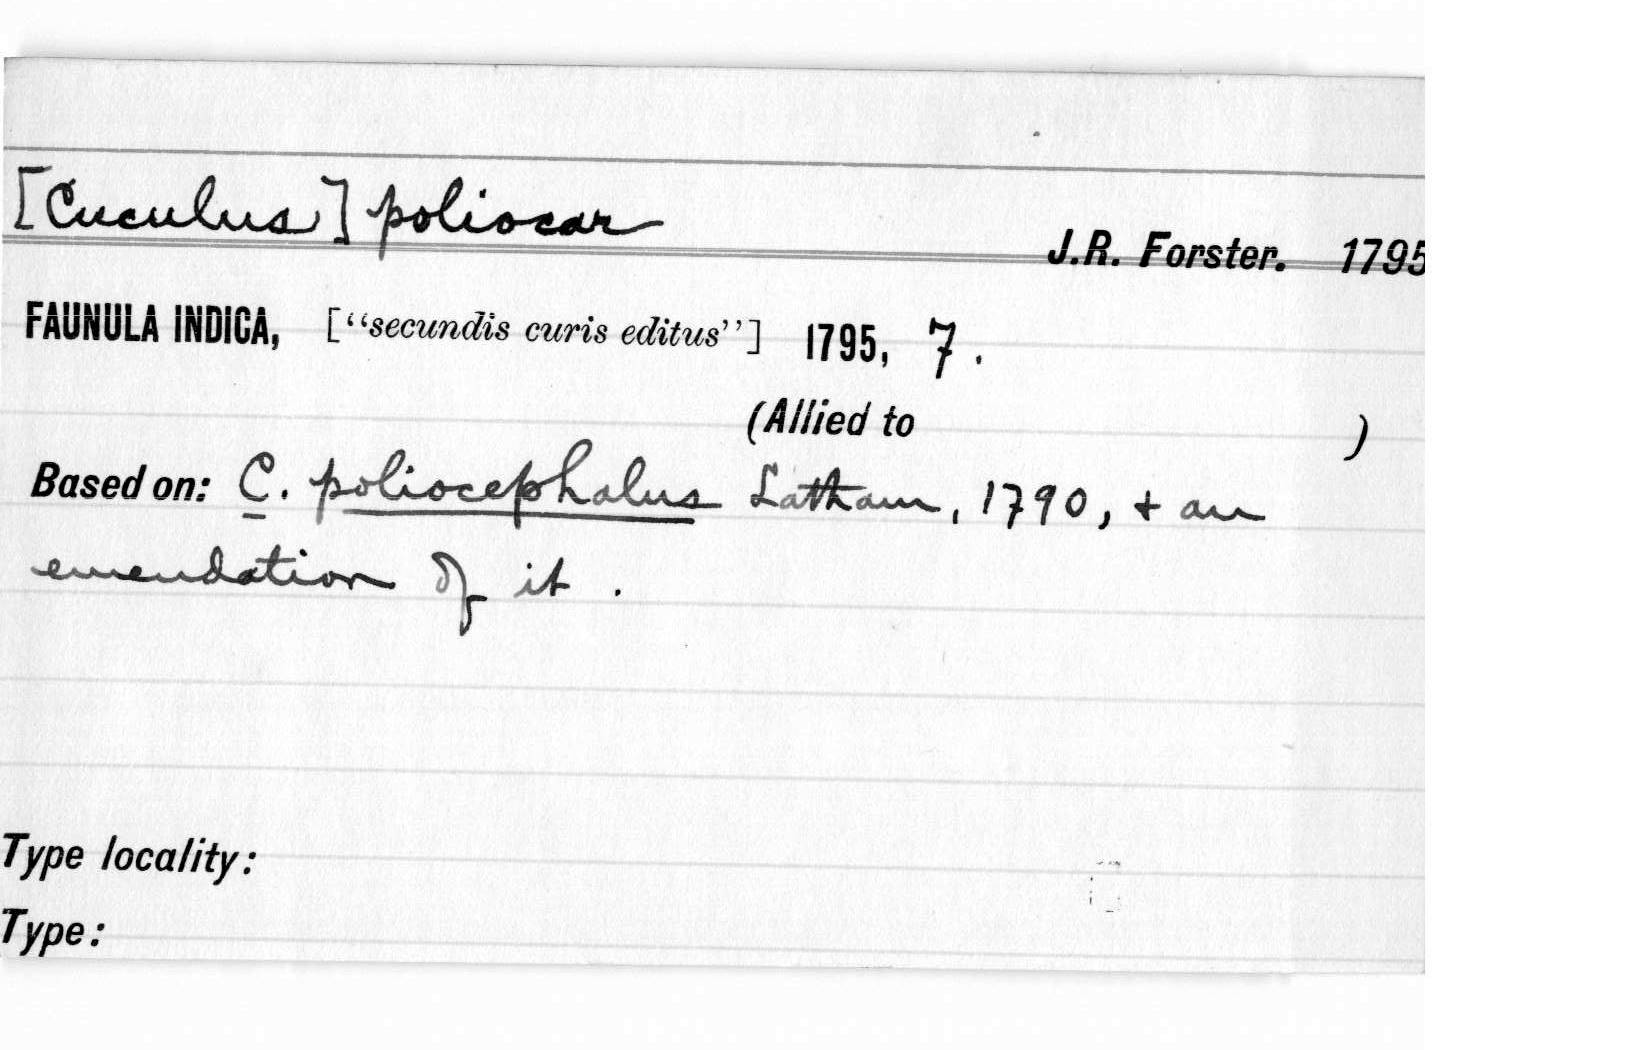 [Cuculus] poliocar
J.R. Forster. 1795
FAUNULA INDICA, ["secundis curis editus"] 1795, 7.
(Allied to )
Based on: C. poliocephalus Latham, 1790, + an
emendation of it.
Type locality:
Type: